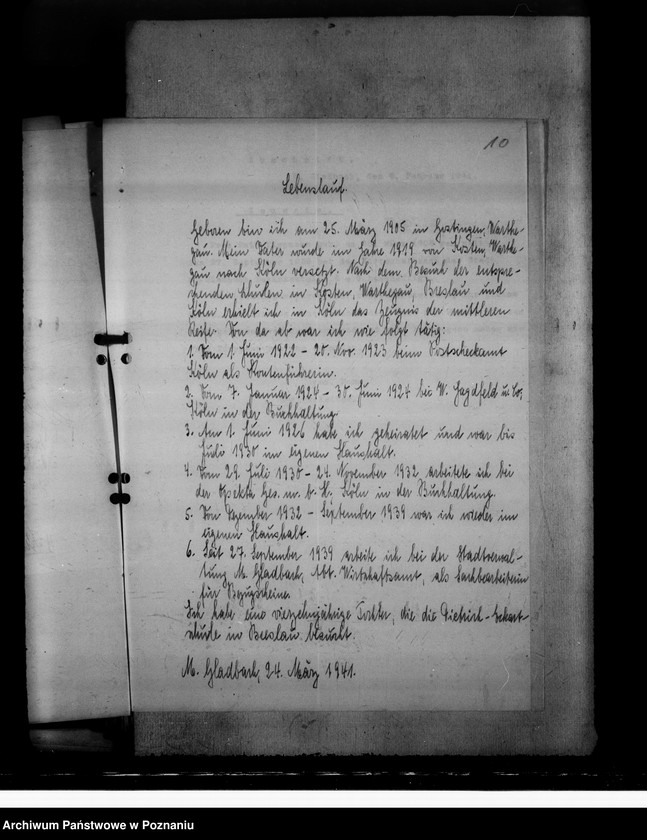 10
Lebenslauf.
Geboren bin ich am 25. März 1905 in Gostingen, Warthe-
gau. Mein Vater wurde im Jahre 1919 von Kosten, Warthe-
gau nach Köln versetzt. Nach dem Besuch der entspre-
chenden Schulen in Kosten, Warthegau, Breslau und
Köln erhielt ich in Köln das Zeugnis der mittleren
Reife. Von da ab war ich wie folgt tätig:
1. Vom 1. Juni 1922 - 20. Nov. 1923 beim Postscheckamt
Köln als Kontenführerin.
2. Vom 7. Januar 1924 - 30. Juni 1924 bei W. Jagdfeld u. Co,
Köln in der Buchhaltung
3. Am 1. Juni 1926 habe ich geheiratet und war bis
Juli 1930 im eigenen Haushalt.
4. Vom 29. Juli 1930 - 24. November 1932 arbeitete ich bei
der Opekta Ges. m. b. H. Köln in der Buchhaltung.
5. Von Dezember 1932 - September 1939 war ich wieder im
eigenen Haushalt.
6. Seit 27. September 1939 arbeite ich bei der Stadtverwal-
tung M. Gladbach, Abt. Wirtschaftsamt, als Sachbearbeiterin
für Bezugscheine.
Ich habe eine vierzehnjährige Tochter, die die Dietrich-Eckart-
schule in Breslau besucht.
M. Gladbach, 24. März 1941.
Archiwum Państwowe w Poznaniu